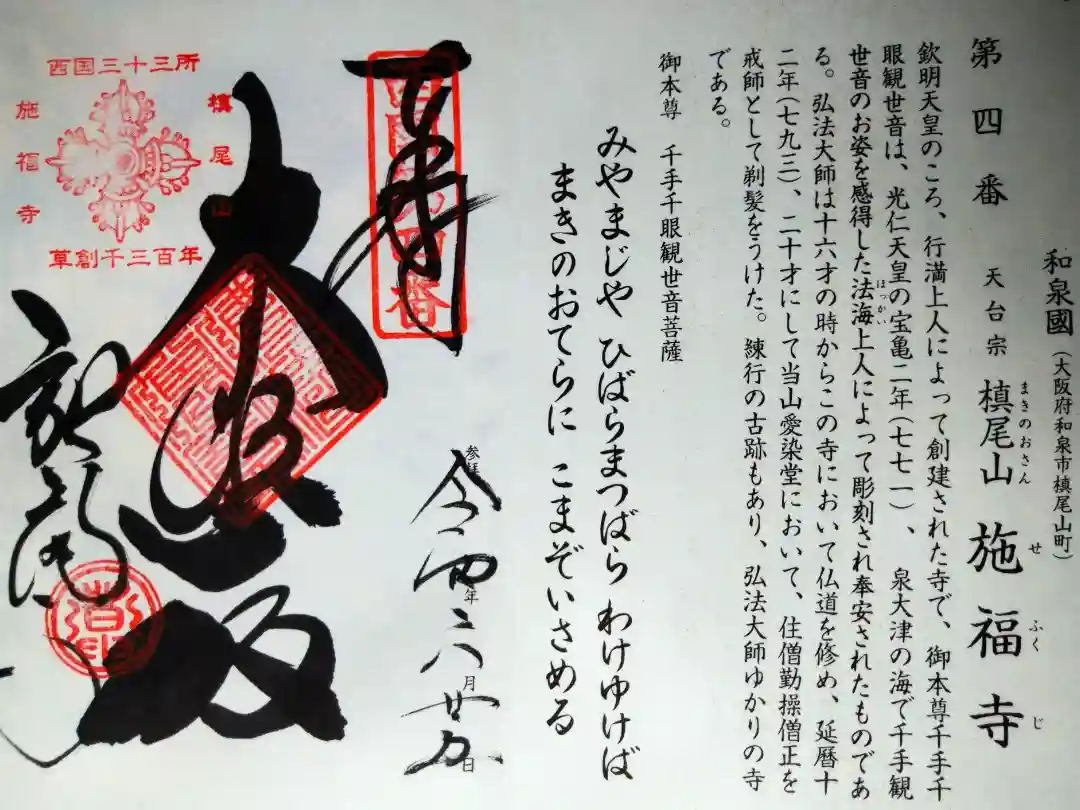 和泉國（大阪府和泉市槙尾山町）
第四番 天台宗 槙尾山 施福寺
まきのおさん せふくじ
欽明天皇のころ、行満上人によって創建された寺で、御本尊千手千
眼観世音は、光仁天皇の宝亀二年（七七一）、泉大津の海で千手観
世音のお姿を感得した法海上人によって彫刻され奉安されたものであ
ほっかい
る。弘法大師は十六才の時からこの寺において仏道を修め、延暦十
二年（七九三）、二十才にして当山愛染堂において、住僧勤操僧正を
戒師として剃髪をうけた。練行の古跡もあり、弘法大師ゆかりの寺
である。
御本尊 千手千眼観世音菩薩
みやまじや ひばらまつばら わけゆけば
まきのおてらに こまぞいさめる
奉拝
西国第四番
参拝 令和四年六月廿五日
大悲殿
西国三十三所
槙尾山
施福寺
草創千三百年